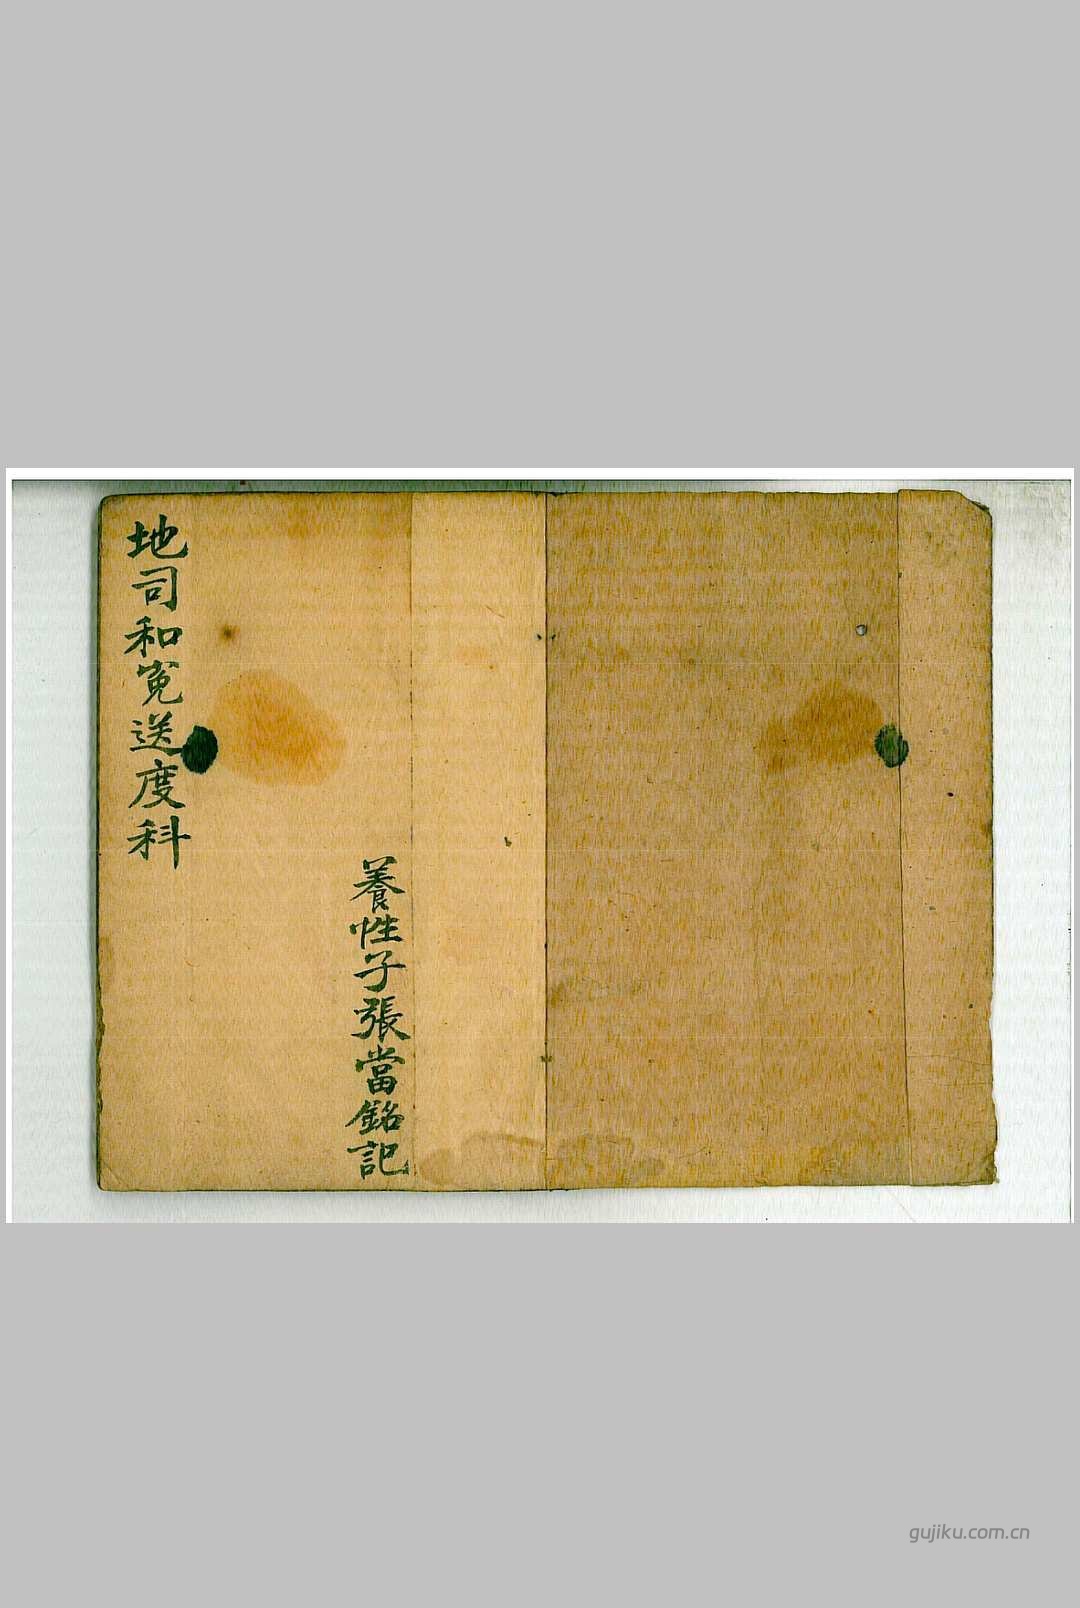 地司和寃送度科
養性子張當銘記
gujiku.com.cn